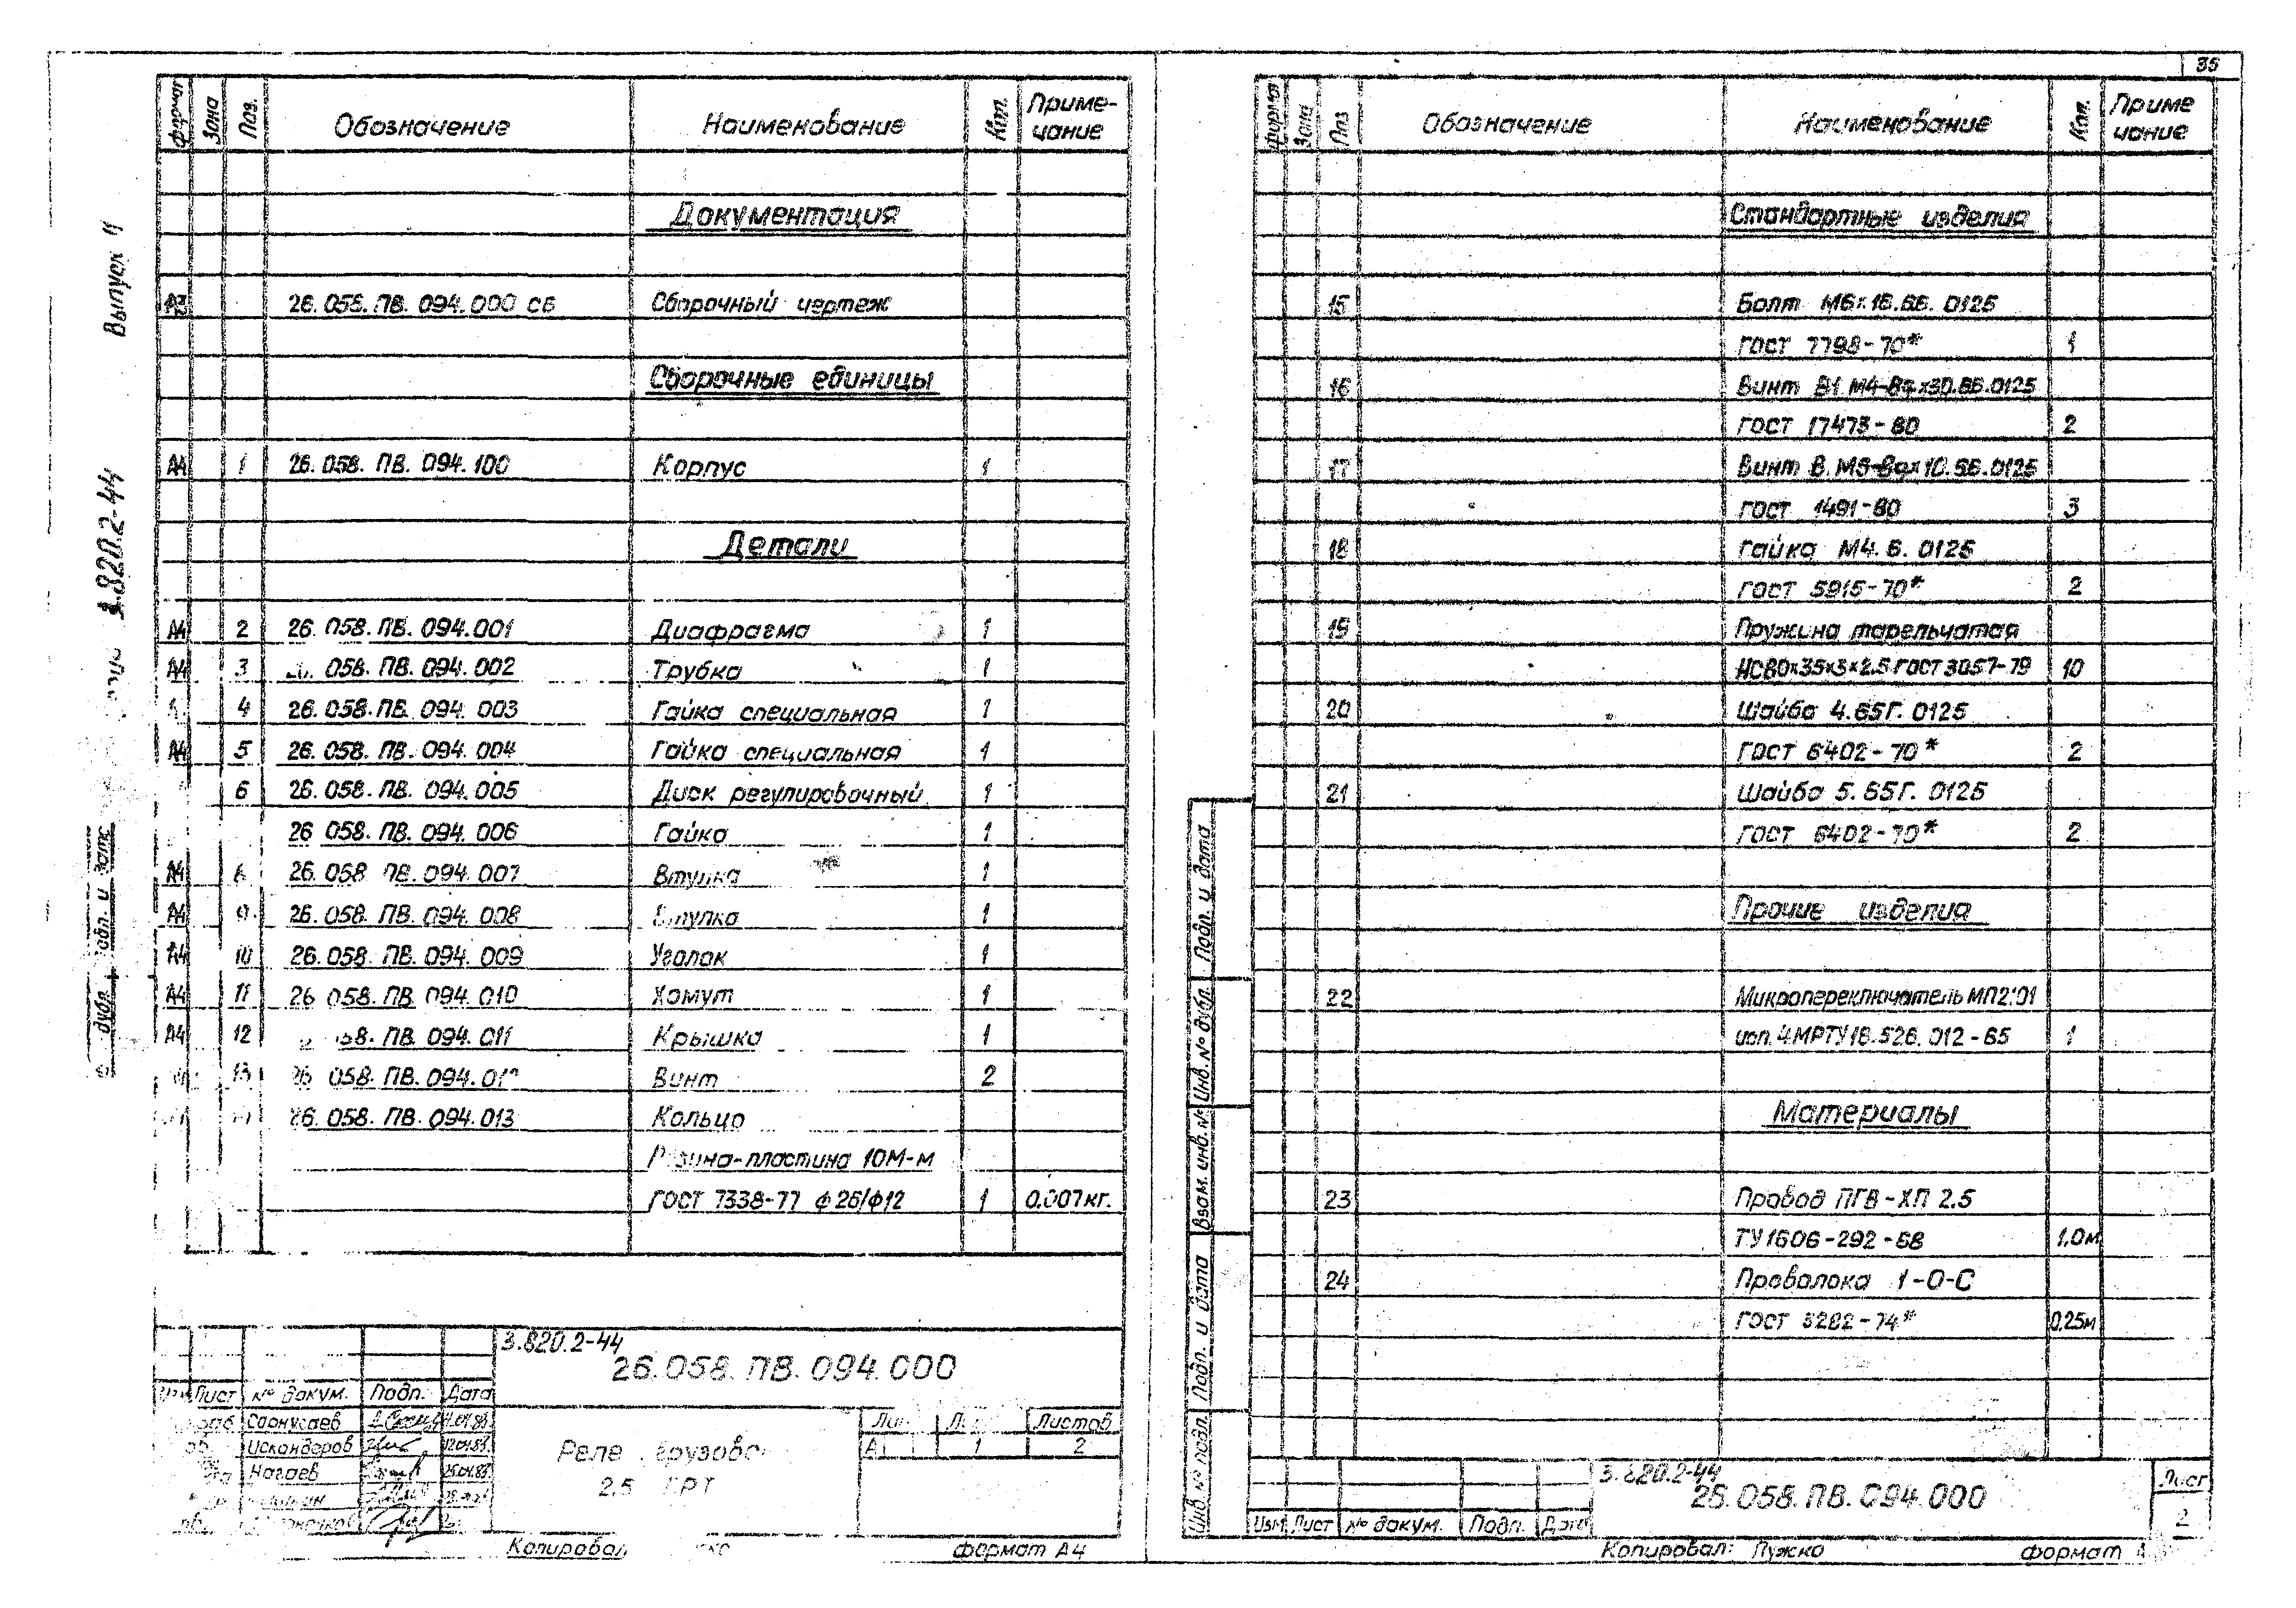 35
Выпуск 11
3.820.2-44
Формат Зона Поз. Обозначение Наименование Кол. Приме-
чание
Документация
А3 26.058.ПВ.094.000 СБ Сборочный чертеж
Сборочные единицы
А4 1 26.058.ПВ.094.100 Корпус 1
Детали
А4 2 26.058.ПВ.094.001 Диафрагма 1
А4 3 058.ПВ.094.002 Трубка 1
4 26.058.ПВ.094.003 Гайка специальная 1
А4 5 26.058.ПВ.094.004 Гайка специальная 1
6 26.058.ПВ.094.005 Диск регулировочный 1
26 058.ПВ.094.006 Гайка 1
А4 26.058 ПВ.094.007 Втулка 1
А4 9 26.058.ПВ.094.008 Втулка 1
А4 10 26.058.ПВ.094.009 Уголок 1
А4 11 26 058.ПВ.094.010 Хомут 1
А4 12 58.ПВ.094.011 Крышка 1
13 26 058.ПВ.094.01 Винт 2
26.058.ПВ.094.013 Кольцо
Резина-пластина 10М-м
ГОСТ 7338-77 ф26/ф12 1 0.007кг.
3.820.2-44
26.058.ПВ.094.000
Лист № докум. Подп. Дата
Сарнусаев
Искандеров
Нагаев
Листов
1 2
Реле грузово
2,5 ГРТ
Копировал
формат А4
Подп. и дата
дубл.
Формат Зона Поз Обозначение Наименование Кол. Приме
чание
Стандартные изделия
15 Болт М6х16.66.0125
ГОСТ 7798-70* 1
16 Винт В1.М4-8gх30.66.0125
ГОСТ 17473-80 2
17 Винт В.М5-8gх10.56.0125
ГОСТ 1491-80 3
18 Гайка М4.6.0125
ГОСТ 5915-70* 2
19 Пружина тарельчатая
НС80х35х3х2.5 ГОСТ 3057-79 10
20 Шайба 4.65Г.0125
ГОСТ 6402-70* 2
21 Шайба 5.65Г.0125
ГОСТ 6402-70* 2
Прочие изделия
22 Микропереключатель МП2101
исп.4МРТУ16.526.012-65 1
Материалы
23 Провод ПГВ-ХП 2.5
ТУ1606-292-68 1,0м
24 Проволока 1-О-С
ГОСТ 3282-74* 0,25м
Подп. и дата
Инв. № дубл.
Взам. инв. №
Подп. и дата
Инв. № подл.
3.820.2-44
26.058.ПВ.094.000
Лист
2
Изм Лист № докум. Подп. Дата
Копировал: Лужко
формат